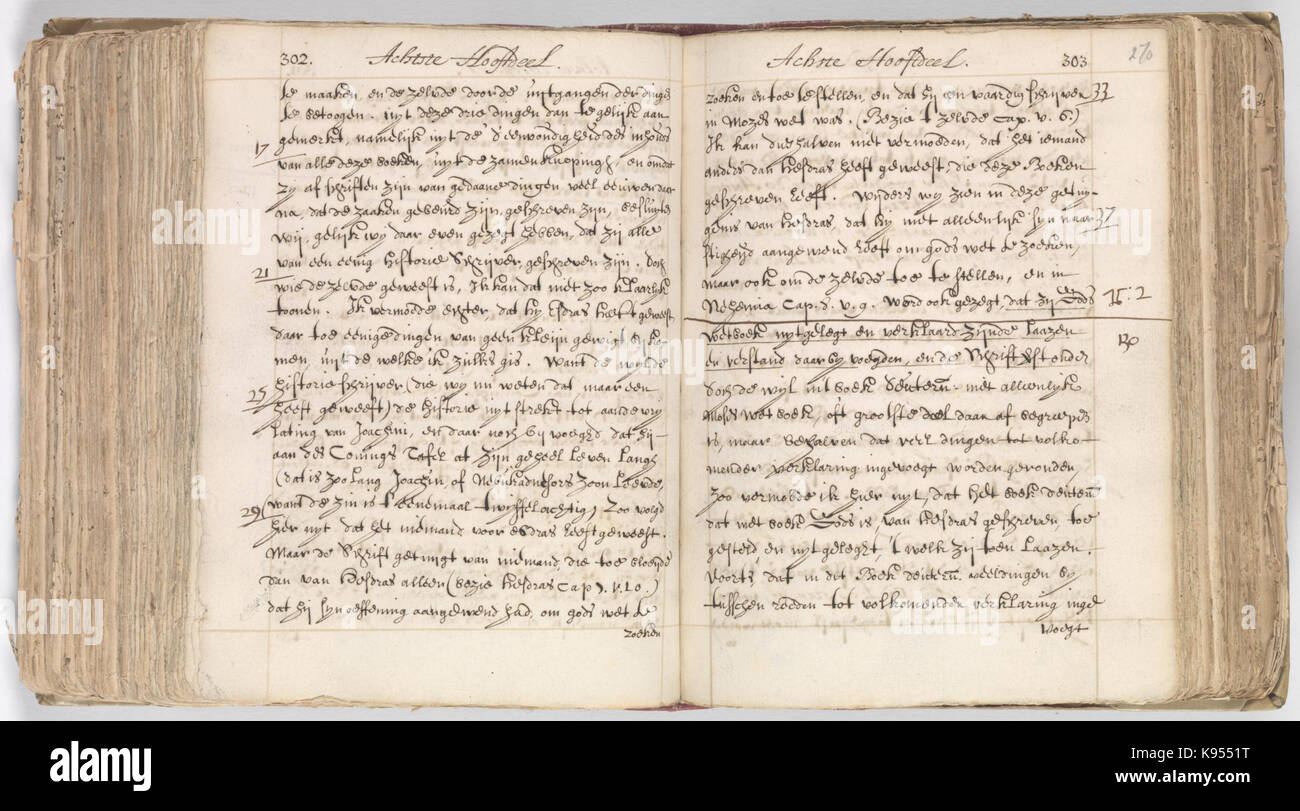 302. Achtste Hoofdeel.
te maaken, en de zelve door de uytgangen der dingen
te betoogen. uyt deze drie dingen dan te gelijk aan
gemerkt, namelijk uyt de d'eenvondigheid des inhouds
17
van alle deze boeken, uyt de zamenknoping, en omdat
zy afschriften zijn van gedaane dingen veel eeuwen daar
na, dat de zaaken gebeurd zijn, geschreven zijn, besluyten
wij, gelijk wy daar even gezegt hebben, dat zij alle
van een eenig historie schrijver geschreven zijn. doch
21
wie de zelve geweest is, Ik kan dat niet zoo klaarlijk
toonen. Ik vermoede echter, dat hy Esdras heeft geweest,
daar toe eenige dingen van geen kleijn gewigt by ko-
men, uyt de welke ik zulks gis. Want de wylde
historie schrijver (die wy nu weten dat maar een
25
heeft geweest) de historie uyt strekt tot aan de vry
lating van Joachin, en daar noch by voeghd dat hij
aan des Conings Tafel at zijn geheel leven langh
(dat is zoo lang Joachin, of Nebukadnesors zoon leevde,
29
want de zin is t'eenemaal twyffelachtig) Zoo volgd
hier uyt dat het niemand voor Esdras heeft geweest.
Maar de Schrift getuigt van niemand die toe bloeyde
dan van Hesdras alleen (bezie Hesdras Cap 7. v. 10.)
dat hij syn oeffening aangewend had, om gods wet te
zoeken
Achste Hoofdeel. 303
270
zoeken en toe te stellen, en dat hij een vaardig schrijver
33
in Mozes wet was. (Bezie 't zelve Cap. v. 6.)
Ik kan dieshalven niet vermoeden, dat het iemand
anders dan Hesdras heeft geweest, die deze Boeken
geschreven heeft. Wijders wy zien in deze getuy-
genis van Hesdras, dat hy niet alleenlijk syn naar
37
stigheyd aangewend heeft om gods wet te zoeken,
maar ook om de zelve toe te stellen, en in
Nehemia Cap. 8. v. 9. werd ook gezegt, dat zij Gods
H: 2
wetboek uytgelegt en verklaard zijnde laazen
130
en verstand daar by voegden, en de Schrift
doch de wijl in 't boek deuteron: niet alleenlijk
Moses wetboek, oft grootste deel daar af begreepen
is, maar behalven dat veel dingen tot volko-
mender verklaring ingevoegt worden gevonden,
Zoo vermoede ik hier uyt, dat het boek deuteron
dat wetboek Gods is, van Hesdras geschreven, toe
gesteld, en uytgeleght, 't welk zij toen laazen.
voorts, dat in dit Boek deuteron: veel dingen by
tusschen reeden tot volkomender verklaring inge
voegt
alamy
K9551T
alamy stock photo